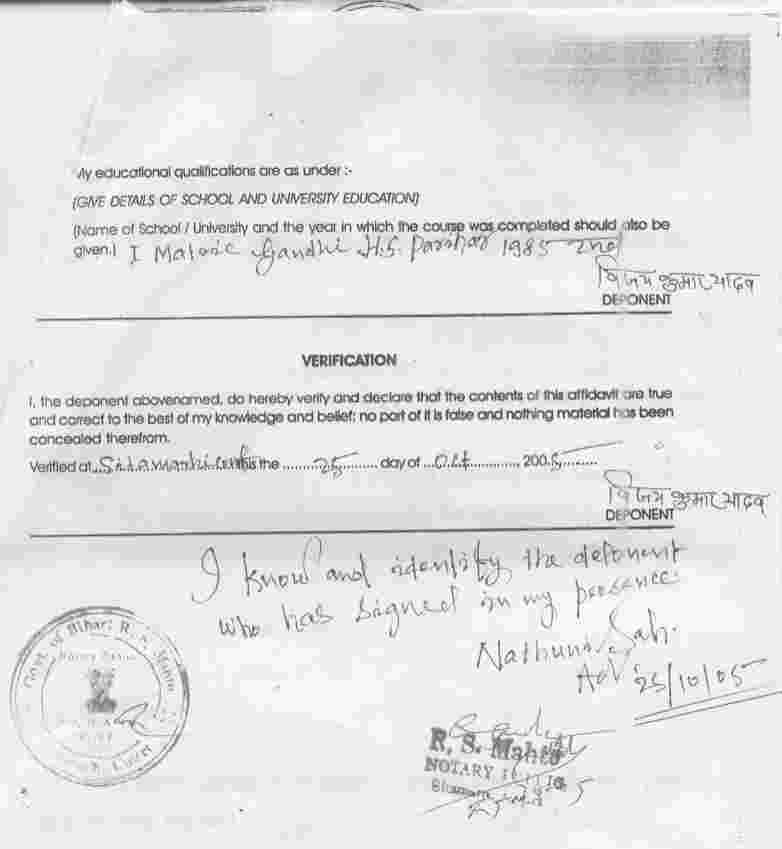 My educational qualifications are as under :-
(GIVE DETAILS OF SCHOOL AND UNIVERSITY EDUCATION)
(Name of School / University and the year in which the course was completed should also be
given.) I Gandhi H.S. 1985 2nd
विजय कुमार यादव
DEPONENT
VERIFICATION
I, the deponent abovenamed, do hereby verify and declare that the contents of this affidavit are true
and correct to the best of my knowledge and belief; no part of it is false and nothing material has been
concealed therefrom.
Verified at Sitamarhi this the ......25...... day of ...Oct............, 2005.........
विजय कुमार यादव
DEPONENT
I know and identify the deponent
who has signed in my presence.
Nathuni Sah.
Adv
25/10/05
Govt. of Bihar
R. S. Mahto
NOTARY